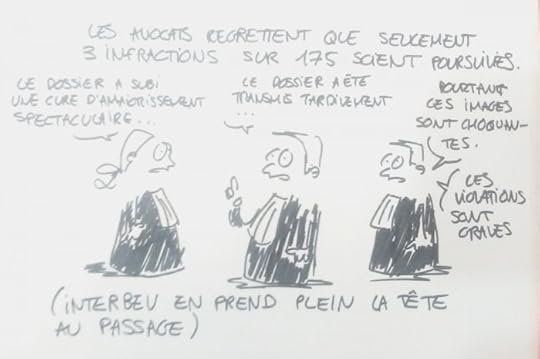 LES AVOCATS REGRETTENT QUE SEULEMENT
3 INFRACTIONS SUR 175 SOIENT POURSUIVIES.
LE DOSSIER A SUBI
UNE CURE D'AMAIGRISSEMENT
SPECTACULAIRE...
LE DOSSIER A ÉTÉ
TRANSMIS TARDIVEMENT
...
POURTANT
CES IMAGES
SONT CHOQUAN-
TES.
LES
VIOLATIONS
SONT
GRAVES
(INTERBEV EN PREND PLEIN LA TÊTE
AU PASSAGE)